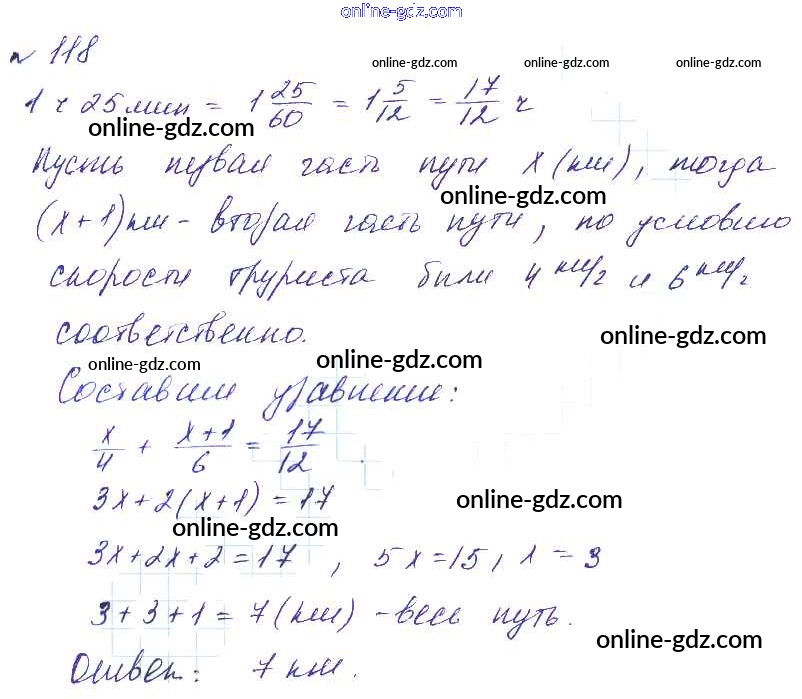 online-gdz.com
№ 118
online-gdz.com online-gdz.com online-gdz.com
1 ч 25 мин = 1 25/60 = 1 5/12 = 17/12 ч
online-gdz.com
Пусть первая часть пути x (км), тогда
online-gdz.com
(x+1) км - вторая часть пути, по условию
скорости туриста были 4 км/ч и 6 км/ч
соответственно.
online-gdz.com
online-gdz.com online-gdz.com
Составим уравнение:
x/4 + (x+1)/6 = 17/12
3x+2(x+1)=17
online-gdz.com
online-gdz.com
3x+2x+2=17, 5x=15, x=3
3+3+1=7(км) - весь путь.
online-gdz.com
Ответ: 7 км.